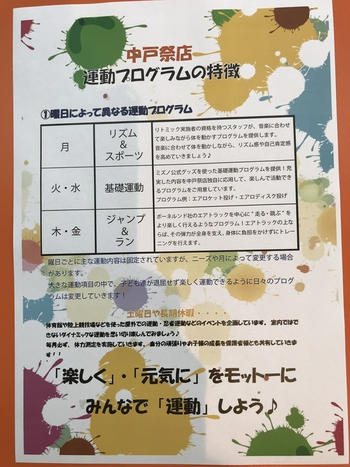 中戸祭店
運動プログラムの特徴
①曜日によって異なる運動プログラム
月
リズム
&
スポーツ
リトミック実施者の資格を持つスタッフが、音楽に合わせ
て楽しみながら体を動かすプログラムを提供します。
音楽に合わせて体を動かしながら、リズム感や自己肯定感
を高めていきましょう♪
火・水
基礎運動
ミズノ公式グッズを使った基礎運動プログラムを提供！充
実した内容を中戸祭店独自に応用して、楽しんで活動でき
るプログラムをご用意しています。
プログラム例：エアロケット投げ・エアロディスク投げ
木・金
ジャンプ
&
ラン
ボーネルンド社のエアトラックを中心に"走る・跳ぶ"を
より楽しく行えるようなプログラム！エアトラックの上な
らば、その弾力が全身を支え、身体に負担をかけずにトレー
ニングを行えます。
曜日ごとに主な運動内容は固定されていますが、ニーズや月によって変更する場合
があります。
大きな運動項目の中で、子ども達が退屈せず楽しく運動できるように日々のプログ
ラムは変更していきます！
土曜日や長期休暇・・・・・
体育館や陸上競技場などを使った屋外での運動・忍者運動などのイベントを企画しています。室内ではで
きないダイナミックな運動を思い切り楽しんでみましょう♪
毎月必ず、体力測定を実施していきます。自分の頑張りやお子様の成長を保護者様とも共有していきま
す！！
「楽しく」・「元気に」をモットーに
みんなで「運動」しよう♪